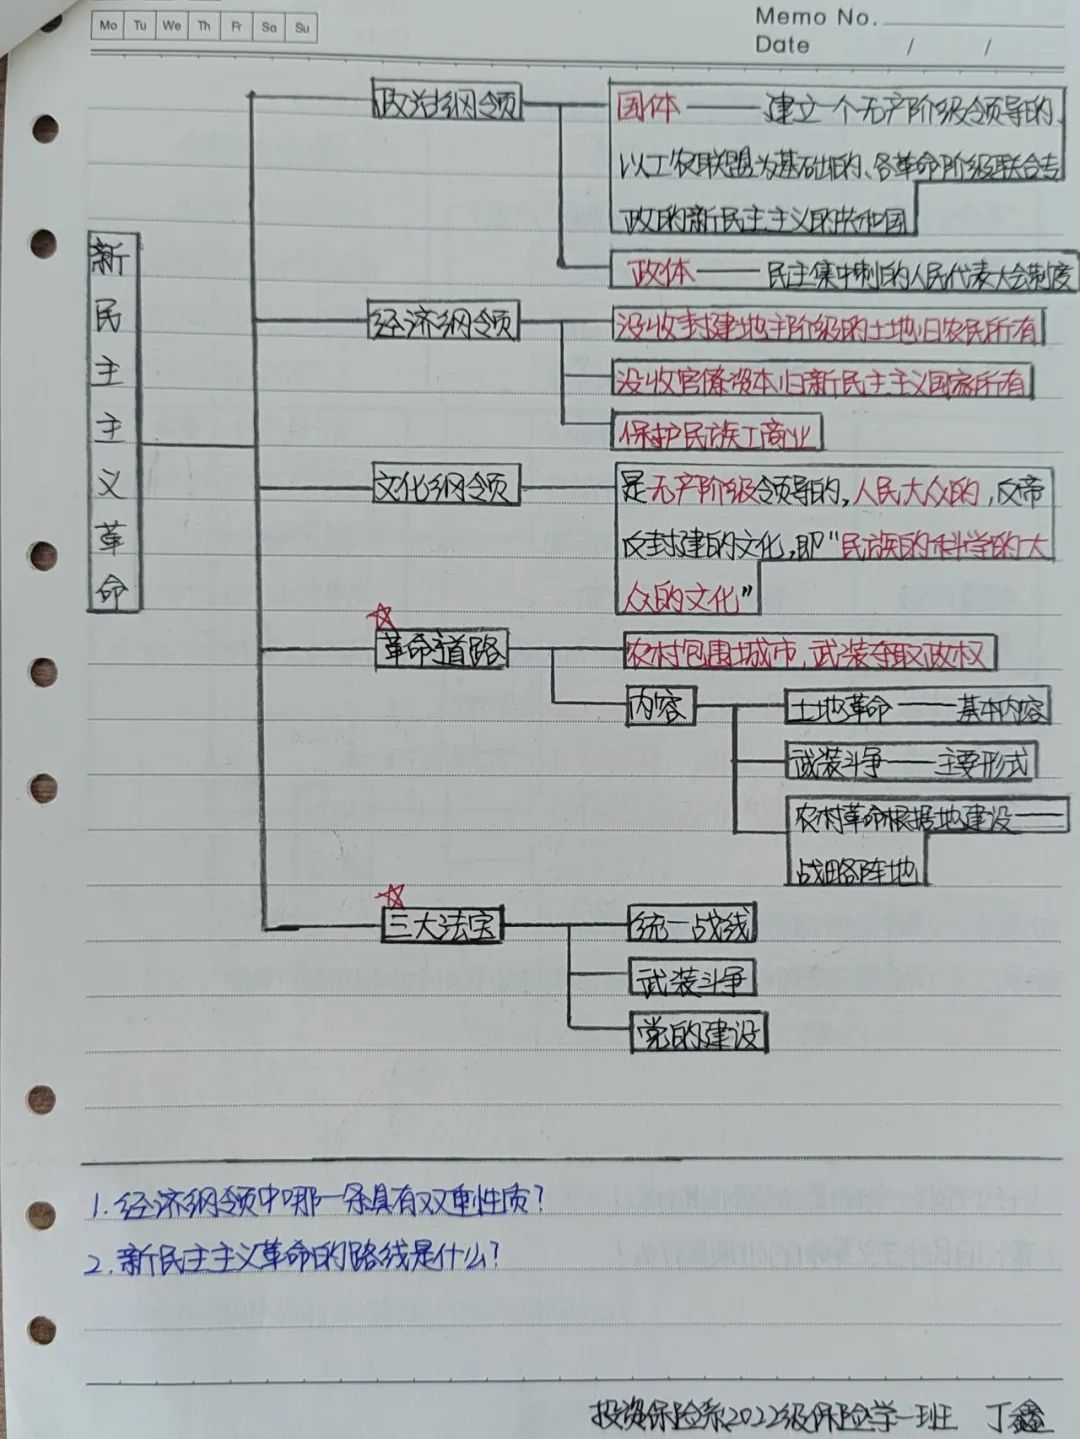 Mo Tu We Th Fr Sa Su
Memo No.
Date / /
新民主主义革命
政治纲领
国体——建立一个无产阶级领导的、
以工农联盟为基础的、各革命阶级联合专
政的新民主主义的共和国
政体——民主集中制的人民代表大会制度
经济纲领
没收封建地主阶级的土地归农民所有
没收官僚资本归新民主主义国家所有
保护民族工商业
文化纲领
是无产阶级领导的,人民大众的,反帝
反封建的文化,即“民族的科学的大
众的文化”
革命道路
农村包围城市,武装夺取政权
内容
土地革命——基本内容
武装斗争——主要形式
农村革命根据地建设——
战略阵地
三大法宝
统一战线
武装斗争
党的建设
1.经济纲领中哪一条具有双重性质?
2.新民主主义革命的路线是什么?
投资保险系2022级保险学一班 丁鑫